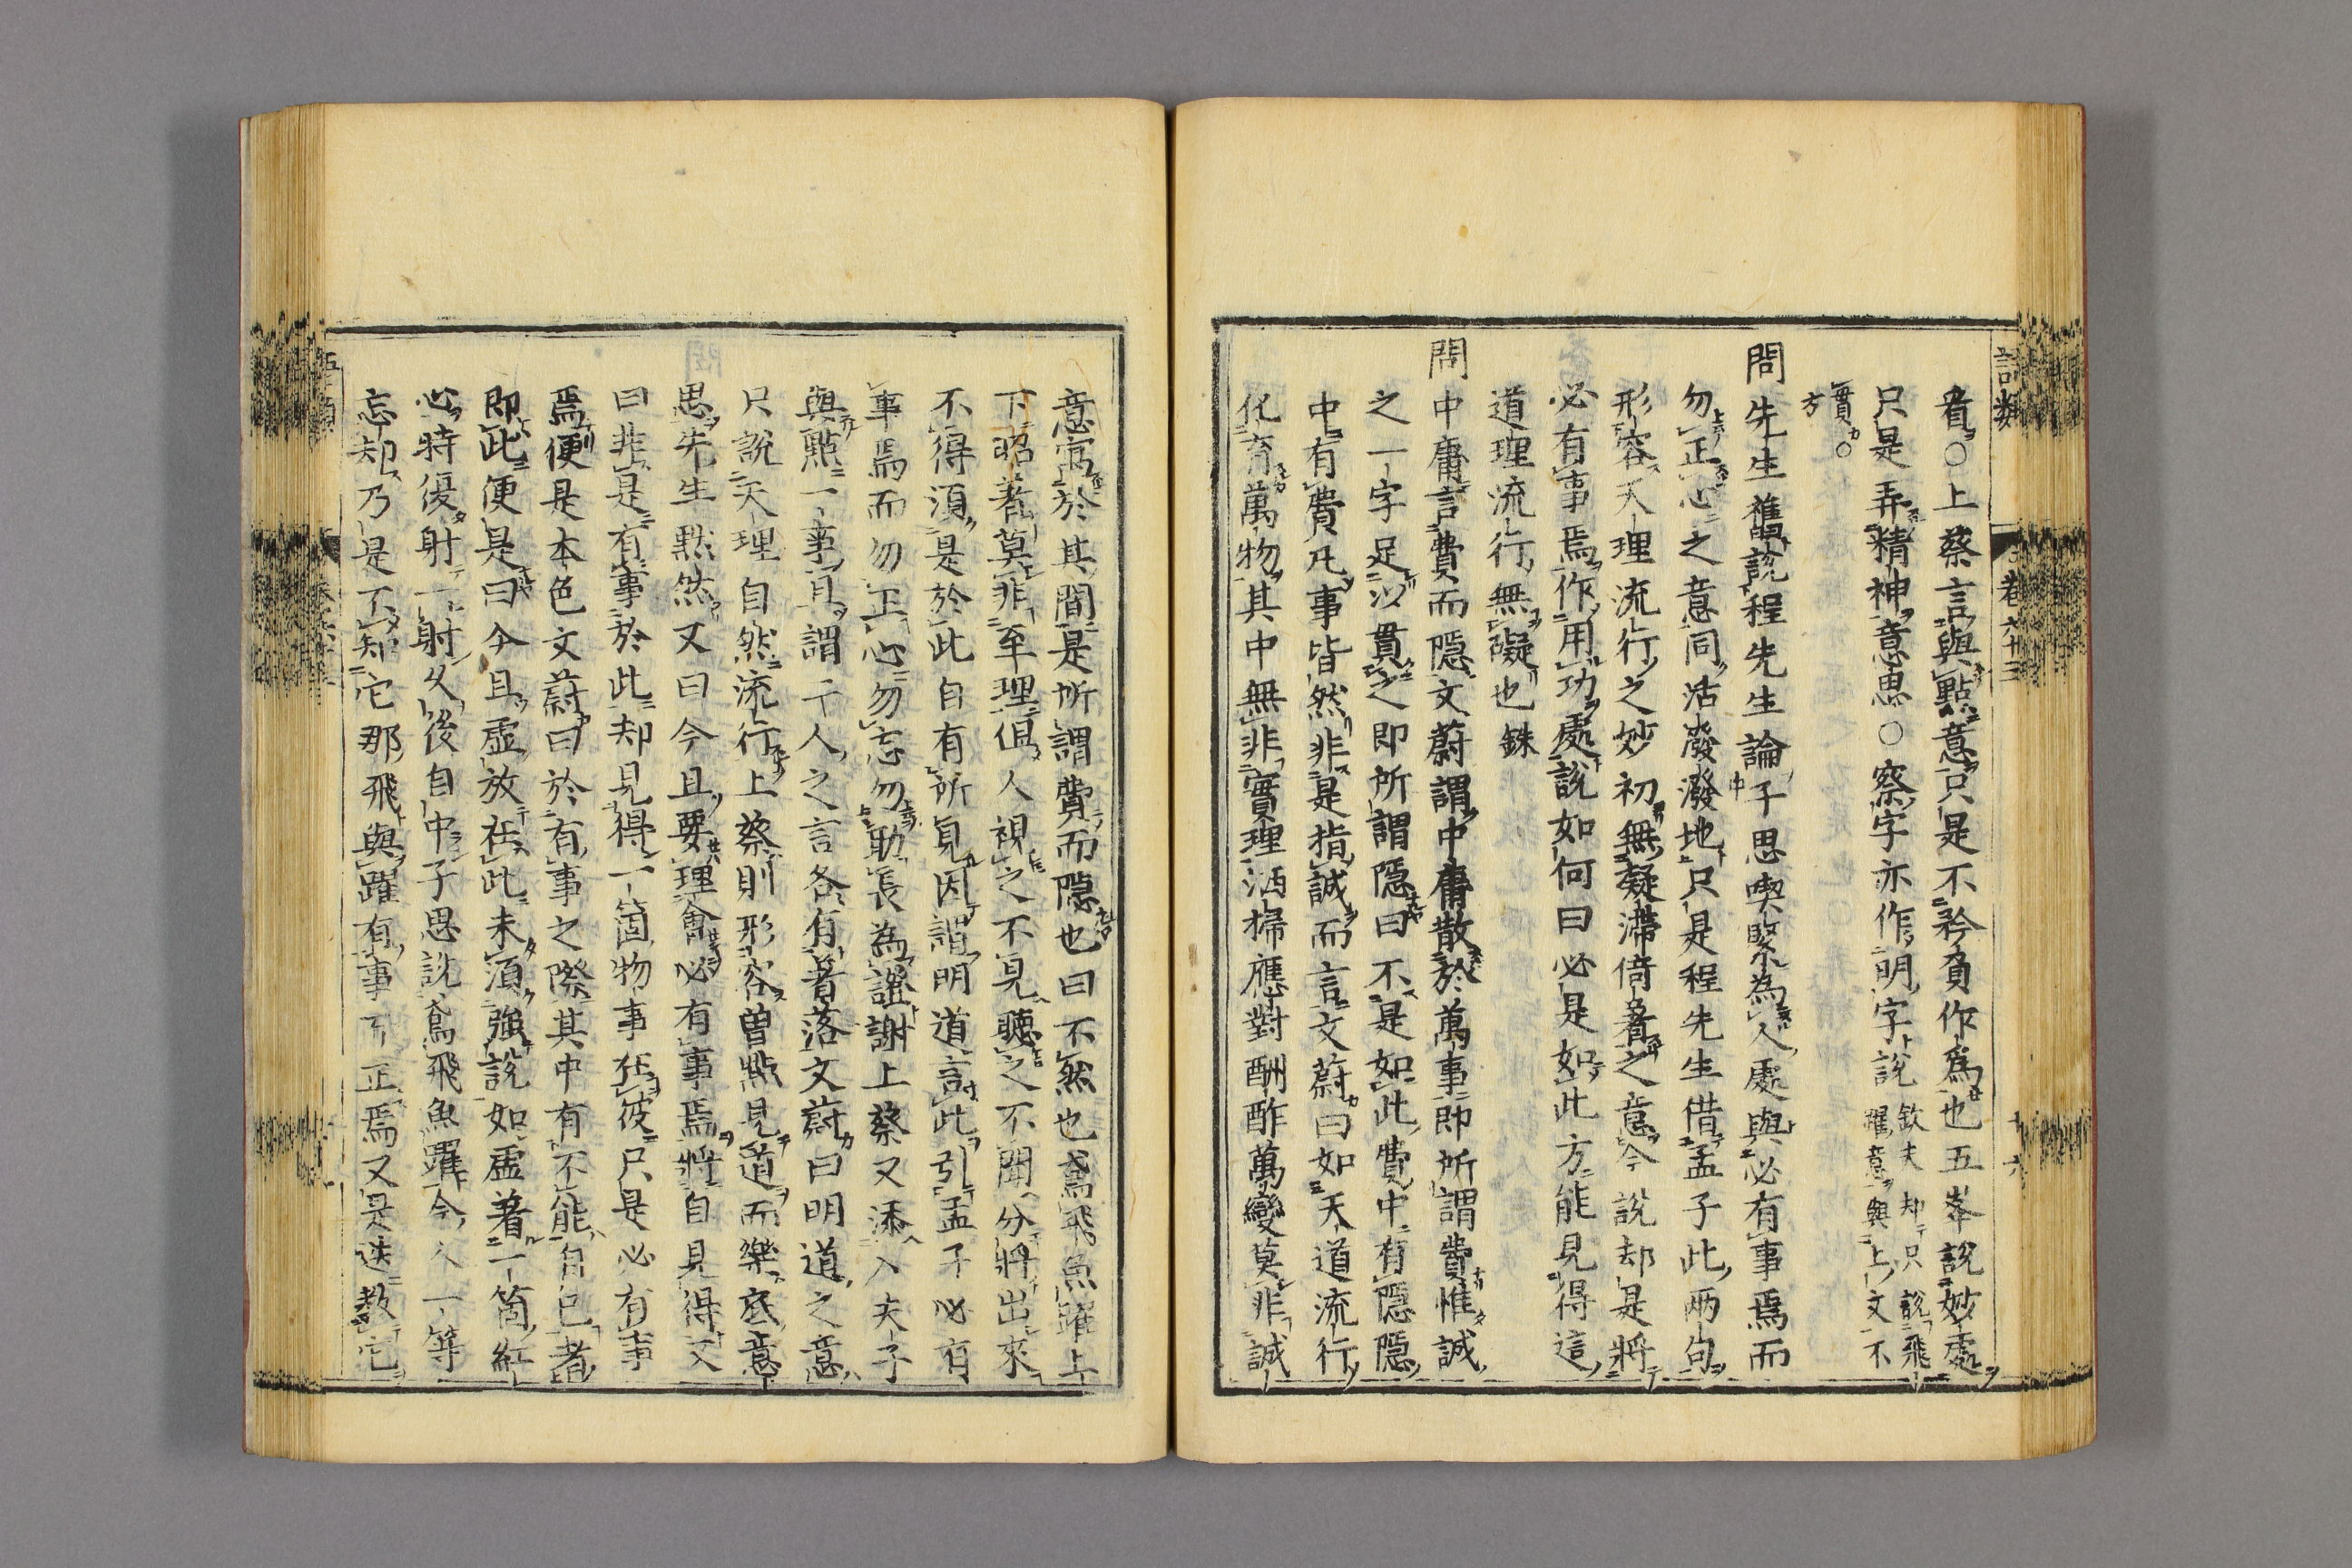 語類
卷六十三
十六
看○上蔡言與點意只是不矜負作爲也五峯說妙處
只是弄精神意思○察字亦作明字說欽夫却只說飛
躍意與上文不
實○
方
問先生舊說程先生論子思喫緊為人處與必有事焉而
勿正心之意同活潑潑地只是程先生借孟子此兩句
形容天理流行之妙初無凝滯倚著之意今說却是將
必有事焉作用功處說如何曰必是如此方能見得這
道理流行無礙也銖
問中庸言費而隱文蔚謂中庸散於萬事即所謂費惟誠
之一字足以貫之即所謂隱曰不是如此費中有隱隱
中有費凡事皆然非是指誠而言文蔚曰如天道流行
化育萬物其中無非實理洒掃應對酬酢萬變莫非誠
意寓於其間是所謂費而隱也曰不然也鳶飛魚躍上
下昭著莫非至理但人視之不見聽之不聞分將出來
不得須是於此自有所見因謂明道言此引孟子必有
事焉而勿正心勿忘勿助長為證謝上蔡又添入夫子
與點一事且謂二人之言各有著落文蔚曰明道之意
只說天理自然流行上蔡則形容曾點見道而樂底意
思先生默然又曰今且要理會必有事焉將自見得又
曰非是有事於此却見得一箇物事在彼只是必有事
焉便是本色文蔚曰於有事之際其中有不能自已者
即此便是曰今且虛放在此未須強說如虛著一箇紅
心時復射一射久後自中子思說鳶飛魚躍今人一等
忘却乃是不知它那飛與躍有事而正焉又是迭教它
語類